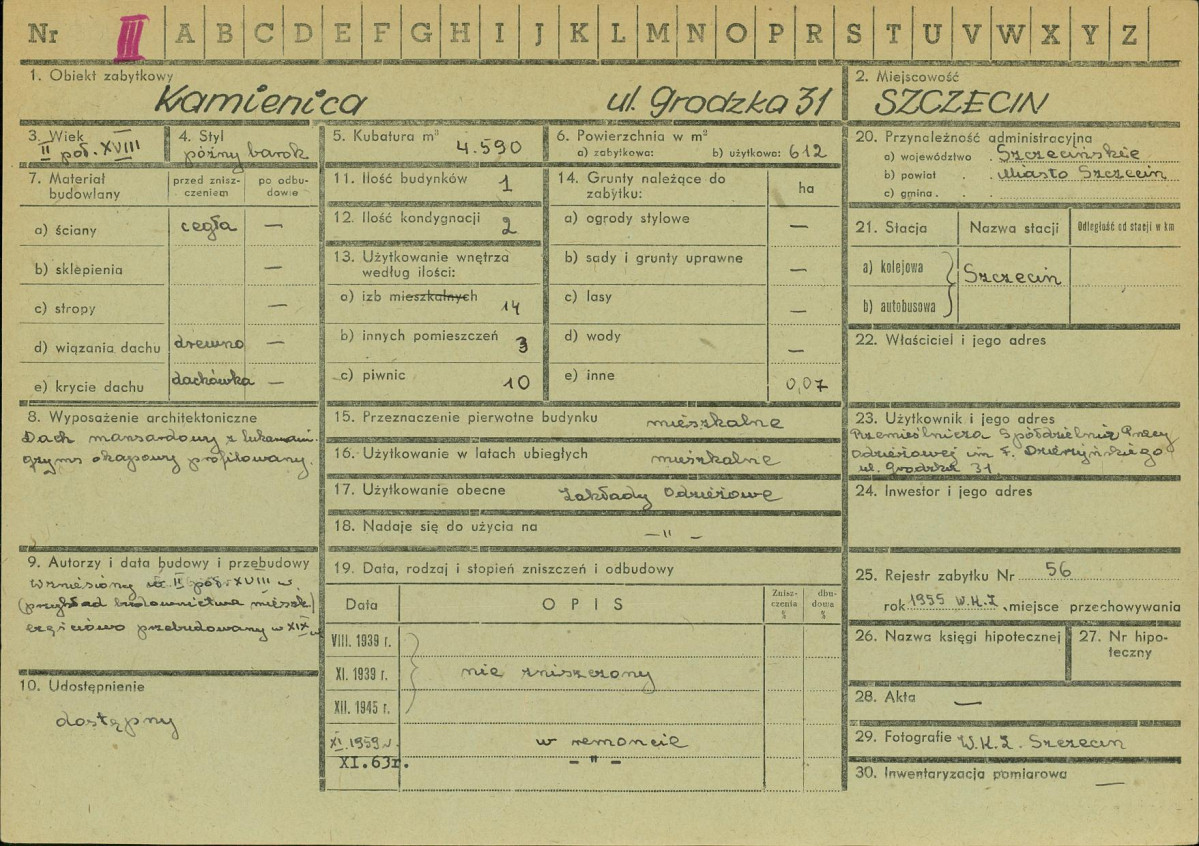 Nr III A B C D E F G H I J K L M N O P R S T U V W X Y Z
1. Obiekt zabytkowy
Kamienica ul. Grodzka 31
2. Miejscowość
SZCZECIN
3. Wiek
II poł. XVIII
4. Styl
późny barok
5. Kubatura m³ 4.590
6. Powierzchnia w m²
a) zabytkowa: b) użytkowa: 612
20. Przynależność administracyjna
a) województwo . Szczecińskie
b) powiat . . Miasto Szczecin
c) gmina . .
7. Materiał budowlany
przed znisz-
czeniem
po odbu-
dowie
a) ściany cegła —
b) sklepienia —
c) stropy —
d) wiązania dachu drewno —
e) krycie dachu dachówka —
11. Ilość budynków 1
12. Ilość kondygnacji 2
13. Użytkowanie wnętrza
według ilości:
a) izb mieszkalnych 14
b) innych pomieszczeń 3
c) piwnic 10
14. Grunty należące do
zabytku: ha
a) ogrody stylowe —
b) sady i grunty uprawne —
c) lasy —
d) wody —
e) inne 0,07
21. Stacja Nazwa stacji Odległość od stacji w km
a) kolejowa
b) autobusowa
Szczecin
22. Właściciel i jego adres
8. Wyposażenie architektoniczne
Dach mansardowy z lukarnami.
gzyms okapowy profilowany.
15. Przeznaczenie pierwotne budynku mieszkalne
16. Użytkowanie w latach ubiegłych mieszkalne
17. Użytkowanie obecne Zakłady Odzieżowe
18. Nadaje się do użycia na —"—
23. Użytkownik i jego adres
Rzemieślnicza Spółdzielnia Pracy
Odzieżowej im F. Dzierżyńskiego
ul. Grodzka 31.
24. Inwestor i jego adres
9. Autorzy i data budowy i przebudowy
Wzniesiony w II poł. XVIII w.
(przykład budownictwa mieszk.)
częściowo przebudowany w XIX w
10. Udostępnienie
dostępny
19. Data, rodzaj i stopień zniszczeń i odbudowy
Data OPIS
Znisz-
czenia
%
dbu-
dowa
%
VIII. 1939 r.
XI. 1939 r. nie zniszczony
XII. 1945 r.
XI. 1959 r. w remoncie
XI. 63r. — " —
25. Rejestr zabytku Nr 56
rok 1955 W.K.Z. , miejsce przechowywania
26. Nazwa księgi hipotecznej
27. Nr hipo-
teczny
28. Akta —
29. Fotografie W.K.Z. Szczecin
30. Inwentaryzacja pomiarowa —